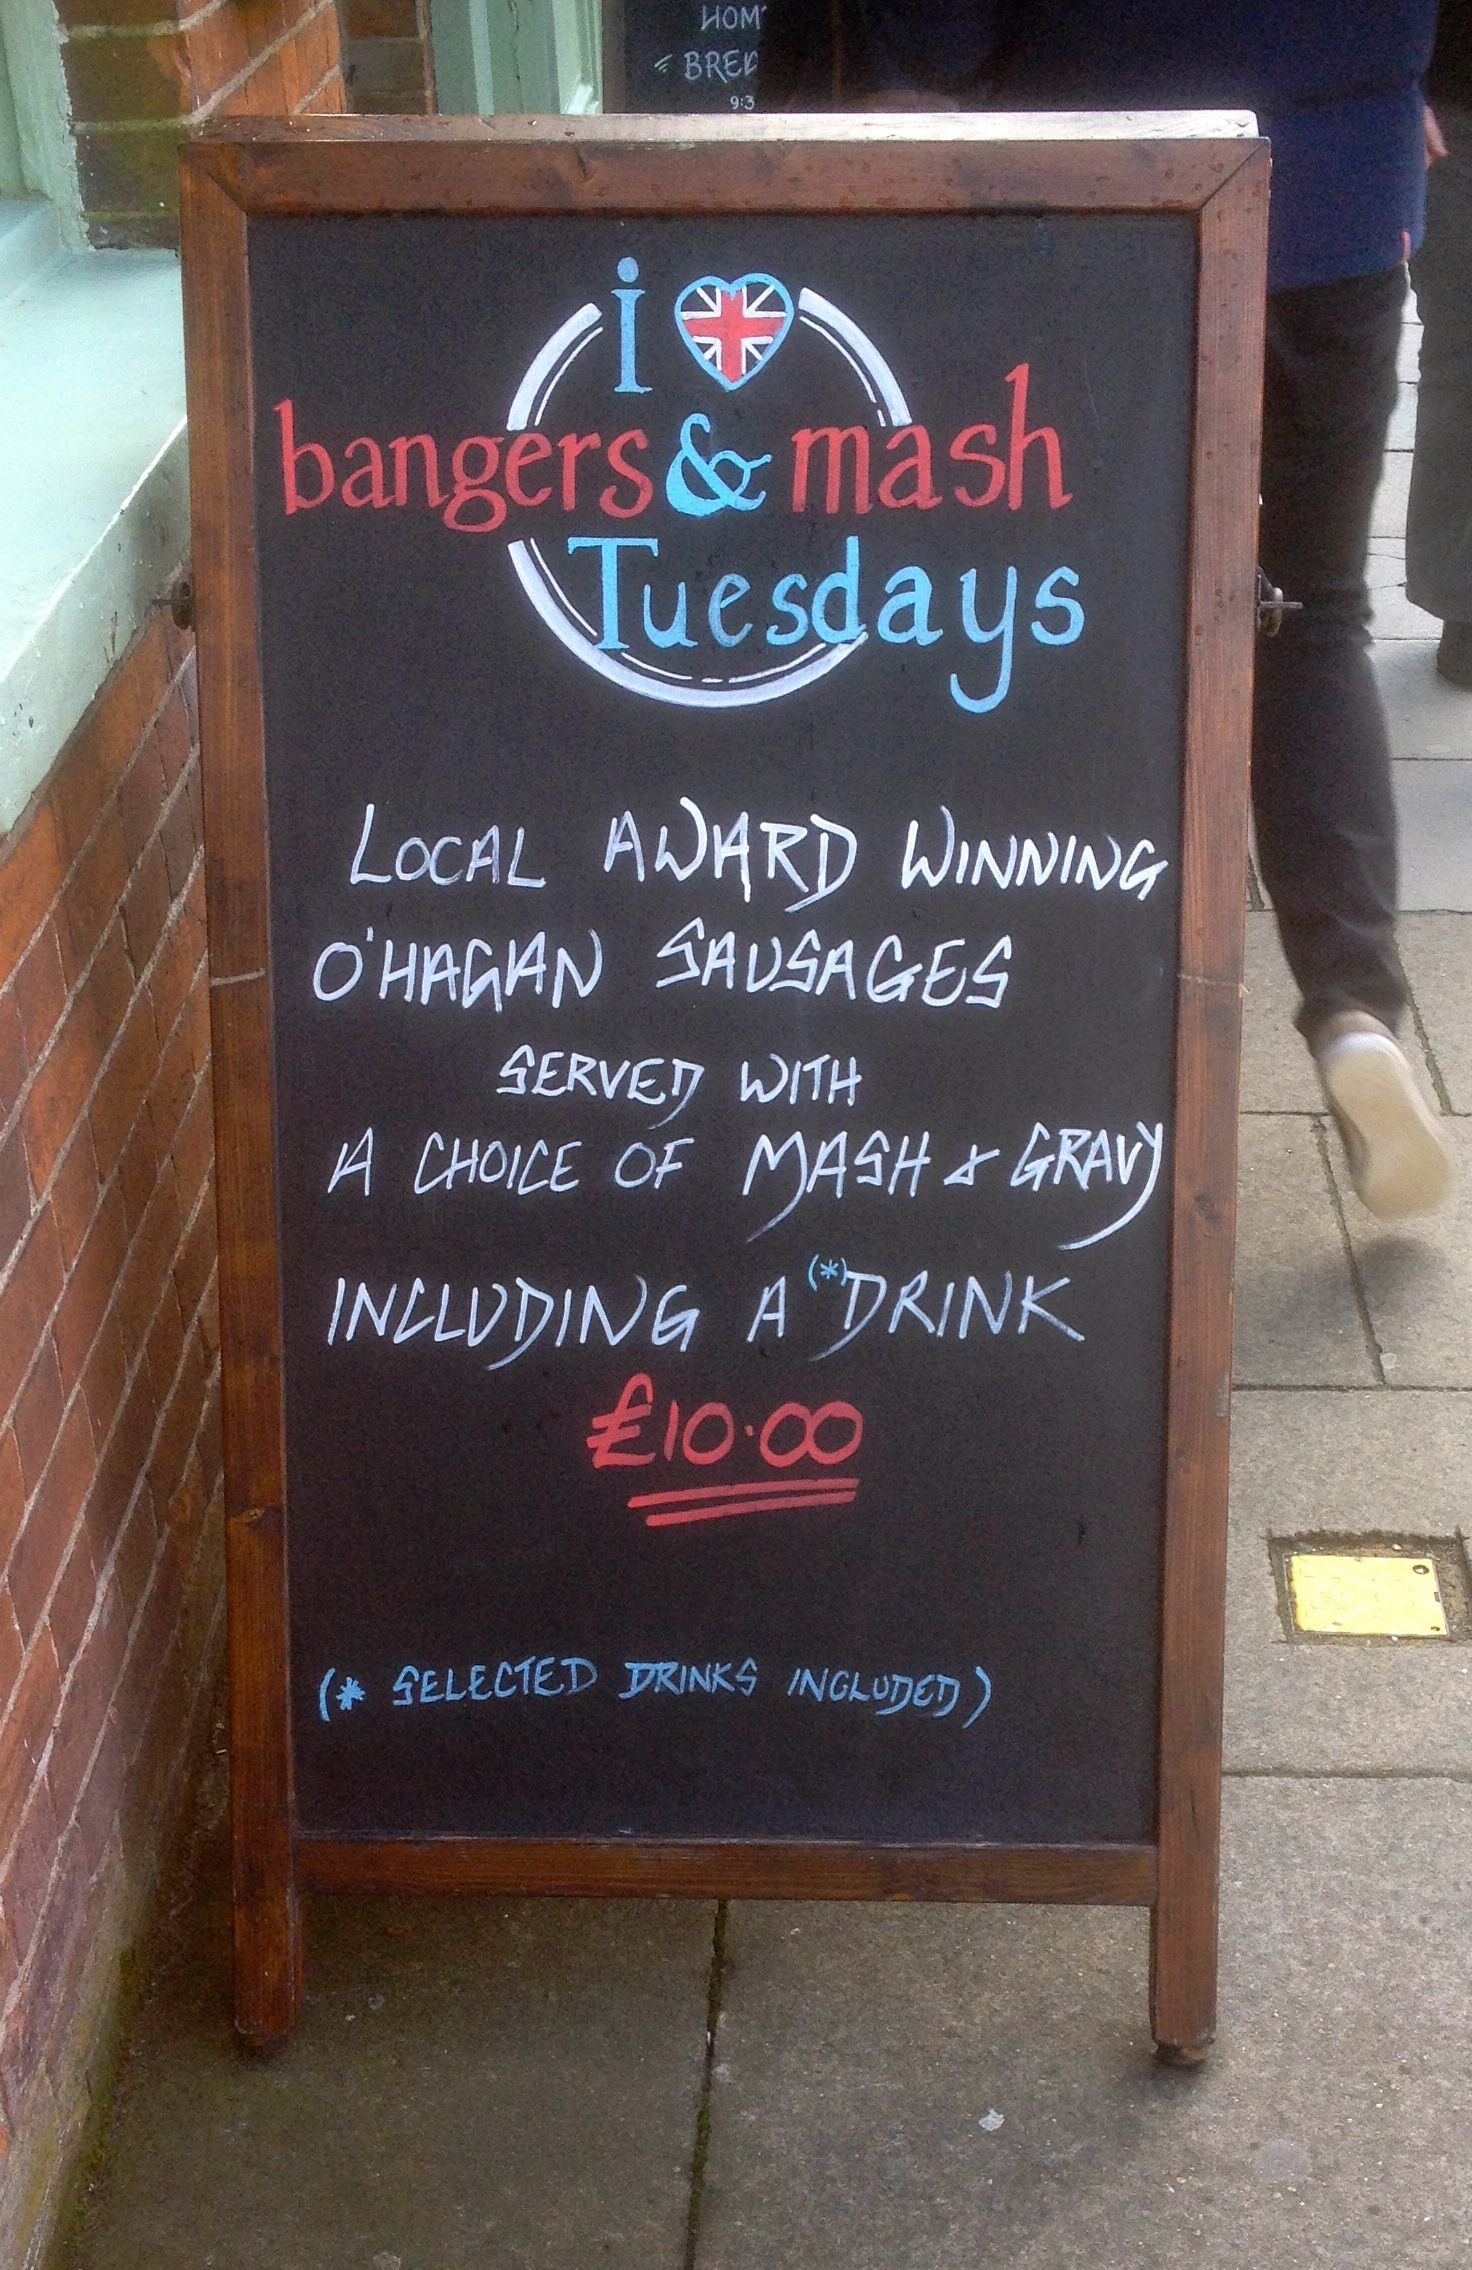 HOM
BREK
9:3
i
bangers & mash
Tuesdays
LOCAL AWARD WINNING
O'HAGAN SAUSAGES
SERVED WITH
A CHOICE OF MASH & GRAVY
INCLUDING A (*) DRINK
£10.00
(* SELECTED DRINKS INCLUDED)